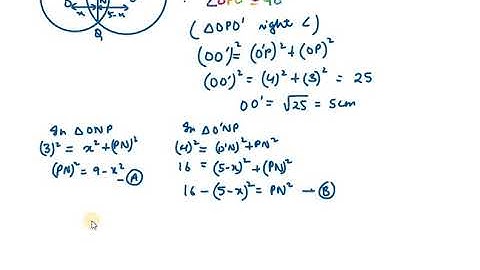 O N O'
x 5-x
Q
∠OPO' = 90°
(△OPO' right ∠)
(OO')² = (O'P)² + (OP)²
(OO')² = (4)² + (3)² = 25
OO' = √25 = 5cm
In △ONP
(3)² = x² + (PN)²
(PN)² = 9 - x² — Ⓐ
In △O'NP
(4)² = (O'N)² + PN²
16 = (5-x)² + (PN)²
16 - (5-x)² = PN² — Ⓑ